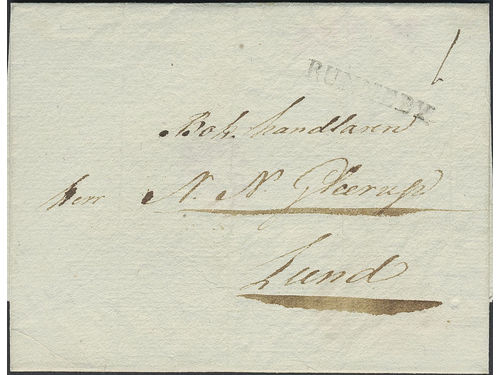 RUNNEBY
Bok handlaren
Herr N. N Gleerup
Lund